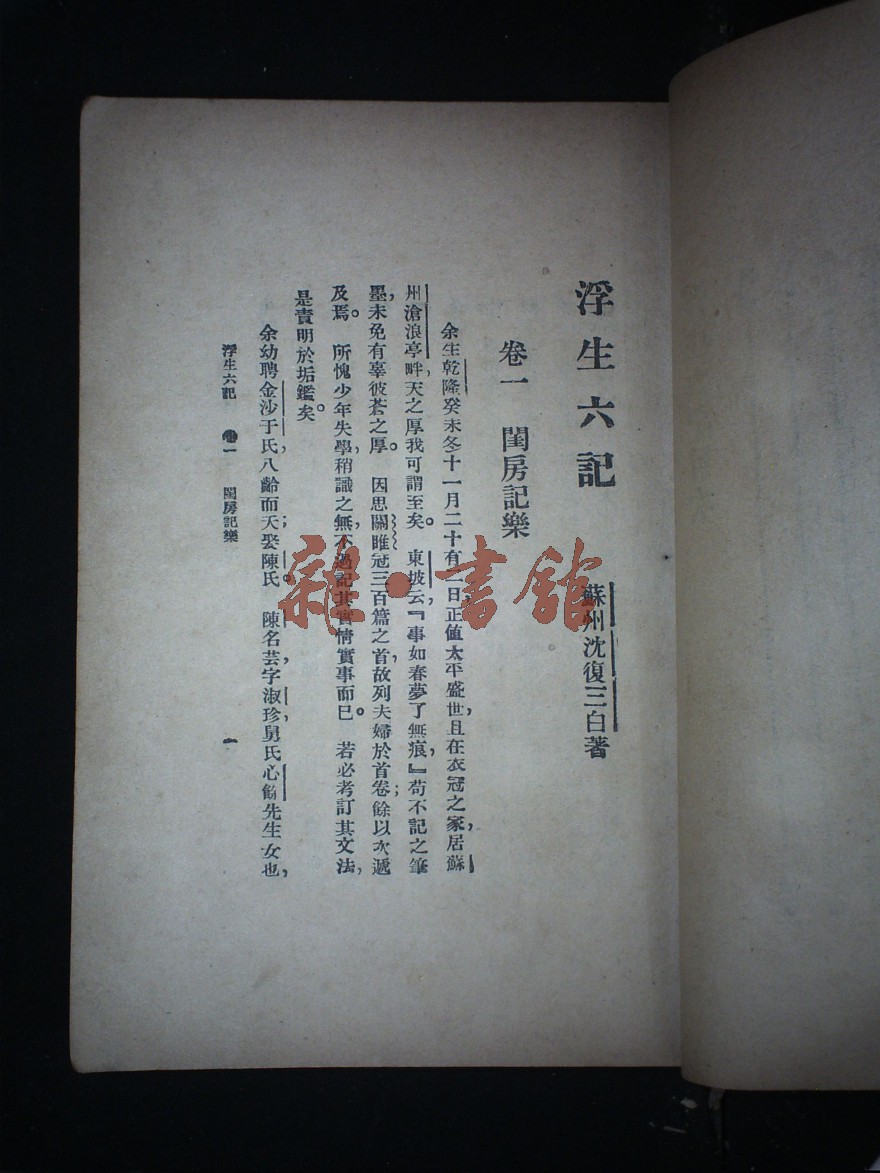 浮生六記
蘇州沈復三白著
卷一 閨房記樂
余生乾隆癸未冬十一月二十有二日,正值太平盛世,且在衣冠之家,居蘇
州滄浪亭畔,天之厚我可謂至矣。東坡云,『事如春夢了無痕,』苟不記之筆
墨,未免有辜彼蒼之厚。因思關雎冠三百篇之首,故列夫婦於首卷;餘以次遞
及焉。所愧少年失學,稍識之無,不過記其實情實事而已。若必考訂其文法,
是責明於垢鑑矣。
余幼聘金沙于氏,八齡而夭;娶陳氏。陳名芸,字淑珍,舅氏心餘先生女也,
浮生六記 卷一 閨房記樂 一
雜·書館